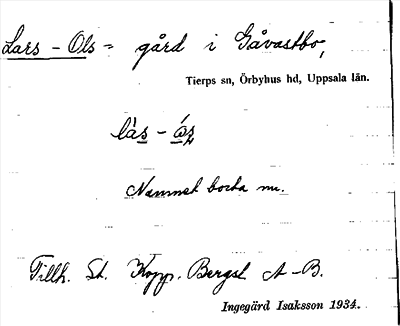 Lars-Ols = gård i Gåvastbo,
Tierps sn, Örbyhus hd, Uppsala län.
làs - ós
Namnet borta nu.
Tillh. St. Kopp. Bergsl. A-B.
Ingegärd Isaksson 1934.